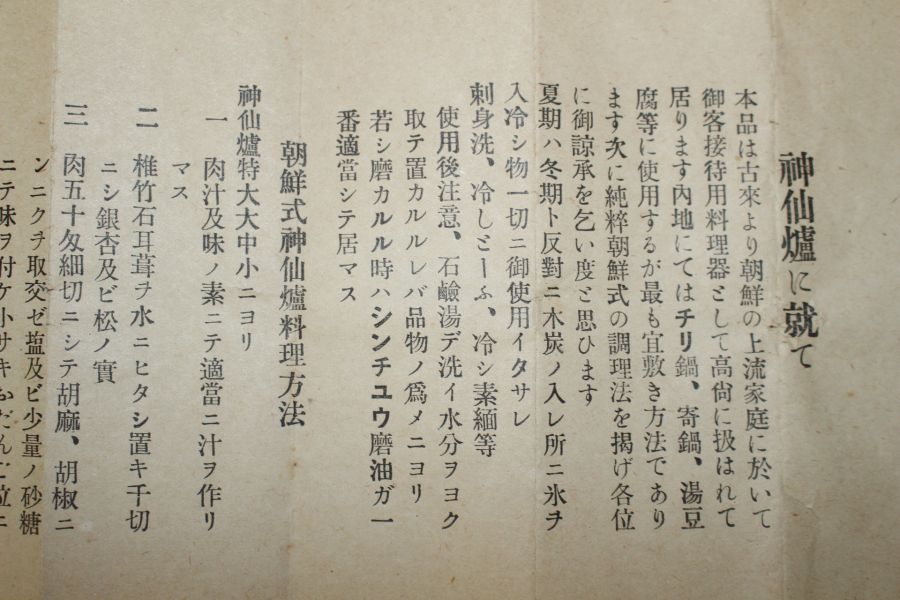 神仙爐に就て
本品は古來より朝鮮の上流家庭に於いて
御客接待用料理器として高尙に扱はれて
居ります內地にてはチリ鍋、寄鍋、湯豆
腐等に使用するが最も宜敷き方法であり
ます次に純粹朝鮮式の調理法を揭げ各位
に御諒承を乞い度と思ひます
夏期ハ冬期ト反對ニ木炭ノ入レ所ニ氷ヲ
入冷シ物一切ニ御使用イタサレ
刺身洗、冷しどーふ、冷シ素緬等
使用後注意、石鹼湯デ洗イ水分ヲヨク
取テ置カルルレバ品物ノ爲メニヨリ
若シ磨カルル時ハシンチユウ磨油ガ一
番適當シテ居マス
朝鮮式神仙爐料理方法
神仙爐特大大中小ニヨリ
一 肉汁及味ノ素ニテ適當ニ汁ヲ作リ
マス
二 椎竹石耳茸ヲ水ニヒタシ置キ千切
ニシ銀杏及ビ松ノ實
三 肉五十匁細切ニシテ胡麻、胡椒ニ
ンニクヲ取交ゼ塩及ビ少量ノ砂糖
ニテ味ヲ付ケ小サキおだんご位ニ